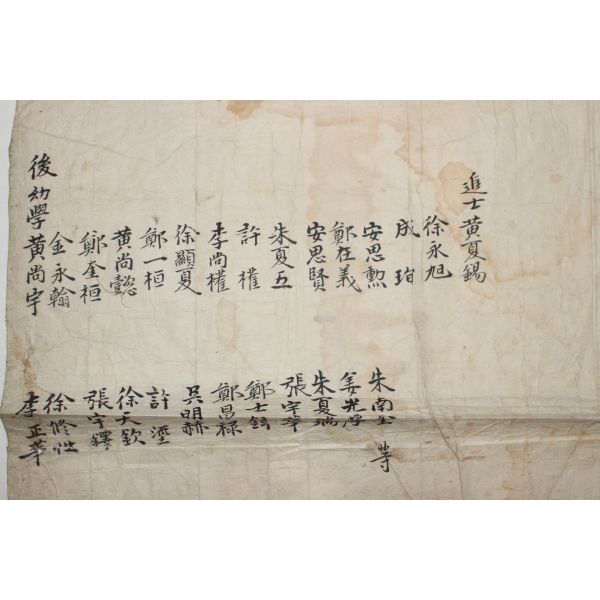 進士 黃夏錫
徐永旭
成珀
安思勳
鄭在義
安思賢
朱夏五
許權
李尚權
徐顯夏
鄭一桓
黃尚懿
鄭奎桓
金永翰
後 幼學 黃尚宇
朱南 等
姜光
朱夏瑞
張宇
鄭士鉉
鄭昌祿
吳明赫
許
徐天欽
張宇鐸
徐修
李正華